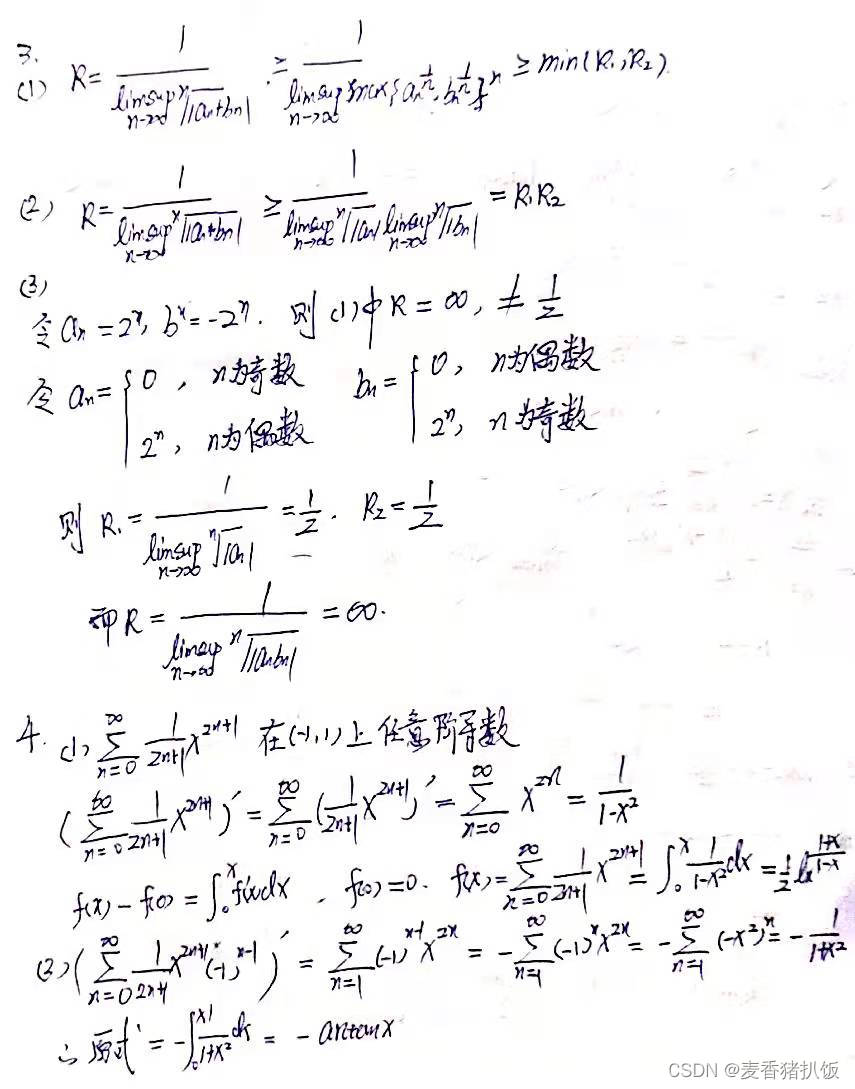 3.
(1) R = 1 / limsup_{n→∞} ⁿ√|aₙ+bₙ| ≥ 1 / limsup_{n→∞} {max{aₙ^{1/n}, bₙ^{1/n}}}ⁿ ≥ min(R₁, R₂).
(2) R = 1 / limsup_{n→∞} ⁿ√|aₙ*bₙ| ≥ 1 / limsup_{n→∞} ⁿ√|aₙ| limsup_{n→∞} ⁿ√|bₙ| = R₁R₂
(3)
令 aₙ = 2ⁿ, bⁿ = -2ⁿ. 则(1)中 R = ∞, ≠ 1/2
令 aₙ = { 0, n为奇数 bₙ = { 0, n为偶数
2ⁿ, n为偶数 2ⁿ, n为奇数
则 R₁ = 1 / limsup_{n→∞} ⁿ√|aₙ| = 1/2. R₂ = 1/2
而 R = 1 / limsup_{n→∞} ⁿ√|aₙbₙ| = ∞.
4. (1) ∑_{n=0}^{∞} 1/(2n+1) x^{2n+1} 在(-1,1)上任意阶导数
(∑_{n=0}^{∞} 1/(2n+1) x^{2n+1})' = ∑_{n=0}^{∞} (1/(2n+1) x^{2n+1})' = ∑_{n=0}^{∞} x^{2n} = 1/(1-x²)
f(x) - f(0) = ∫₀ˣ f'(x)dx, f(0) = 0. f(x) = ∑_{n=0}^{∞} 1/(2n+1) x^{2n+1} = ∫₀ˣ 1/(1-x²) dx = 1/2 ln (1+x)/(1-x)
(2) (∑_{n=0}^{∞} 1/(2n+1) x^{2n+1} (-1)^{n-1})' = ∑_{n=1}^{∞} (-1)^{n-1} x^{2n} = -∑_{n=1}^{∞} (-1)ⁿ x^{2n} = -∑_{n=1}^{∞} (-x²)ⁿ = -1/(1+x²)
∴ 原式 = -∫₀ˣ 1/(1+x²) dx = -arctanx
CSDN @麦香猪扒饭